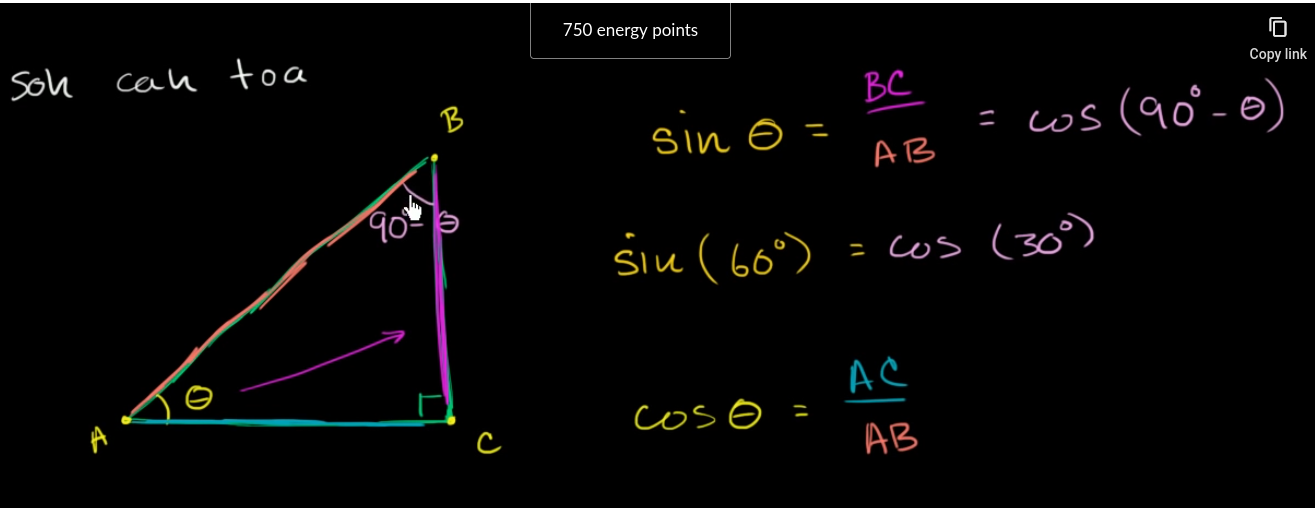 750 energy points
Copy link
Soh cah toa
B
90° - θ
θ
A
C
sin θ = BC / AB = cos (90° - θ)
sin (60°) = cos (30°)
cos θ = AC / AB